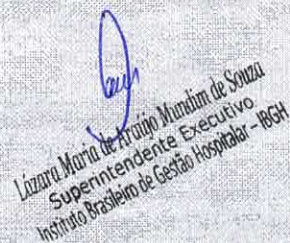 Lázara Maria de Araújo Mundim de Souza
Superintendente Executivo
Instituto Brasileiro de Gestão Hospitalar - IBGH